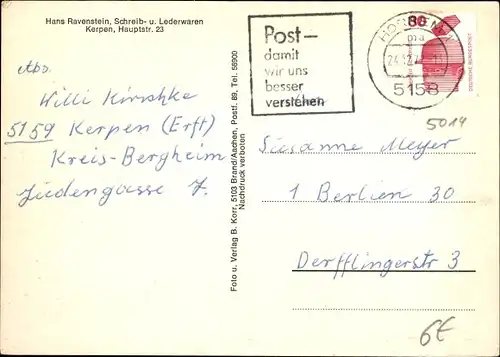 Hans Ravenstein, Schreib- u. Lederwaren
Kerpen, Hauptstr. 23
Abs.
Willi Kirschke
5159 Kerpen (Erft)
Kreis-Bergheim
Judengasse 7.
Foto u. Verlag B. Korr, 5103 Brand/Aachen, Postf. 89, Tel. 56900
Nachdruck verboten
Post—
damit
wir uns
besser
verstehen
5158
80
DEUTSCHE BUNDESPOST
5014
Susanne Meyer
1 Berlien 30
Derfflingerstr 3
6€